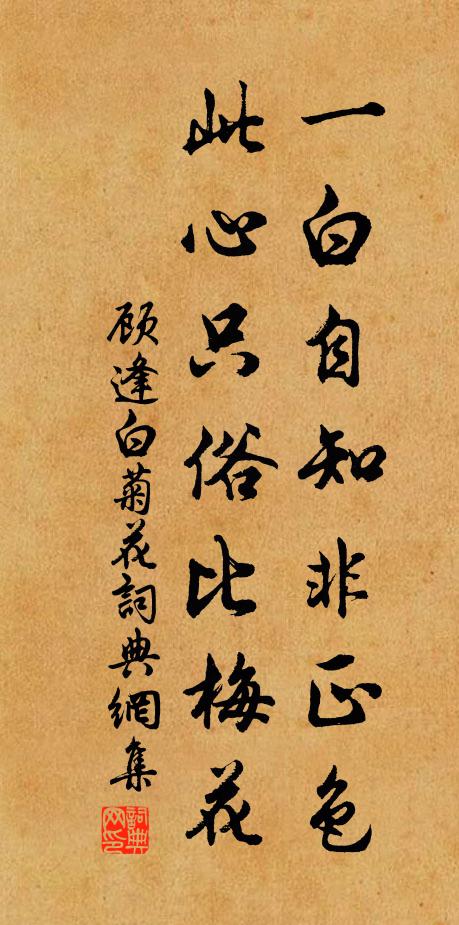 一白自知非正色
此心只俗比梅花
顾逢白菊花詞典網集
詞典网印